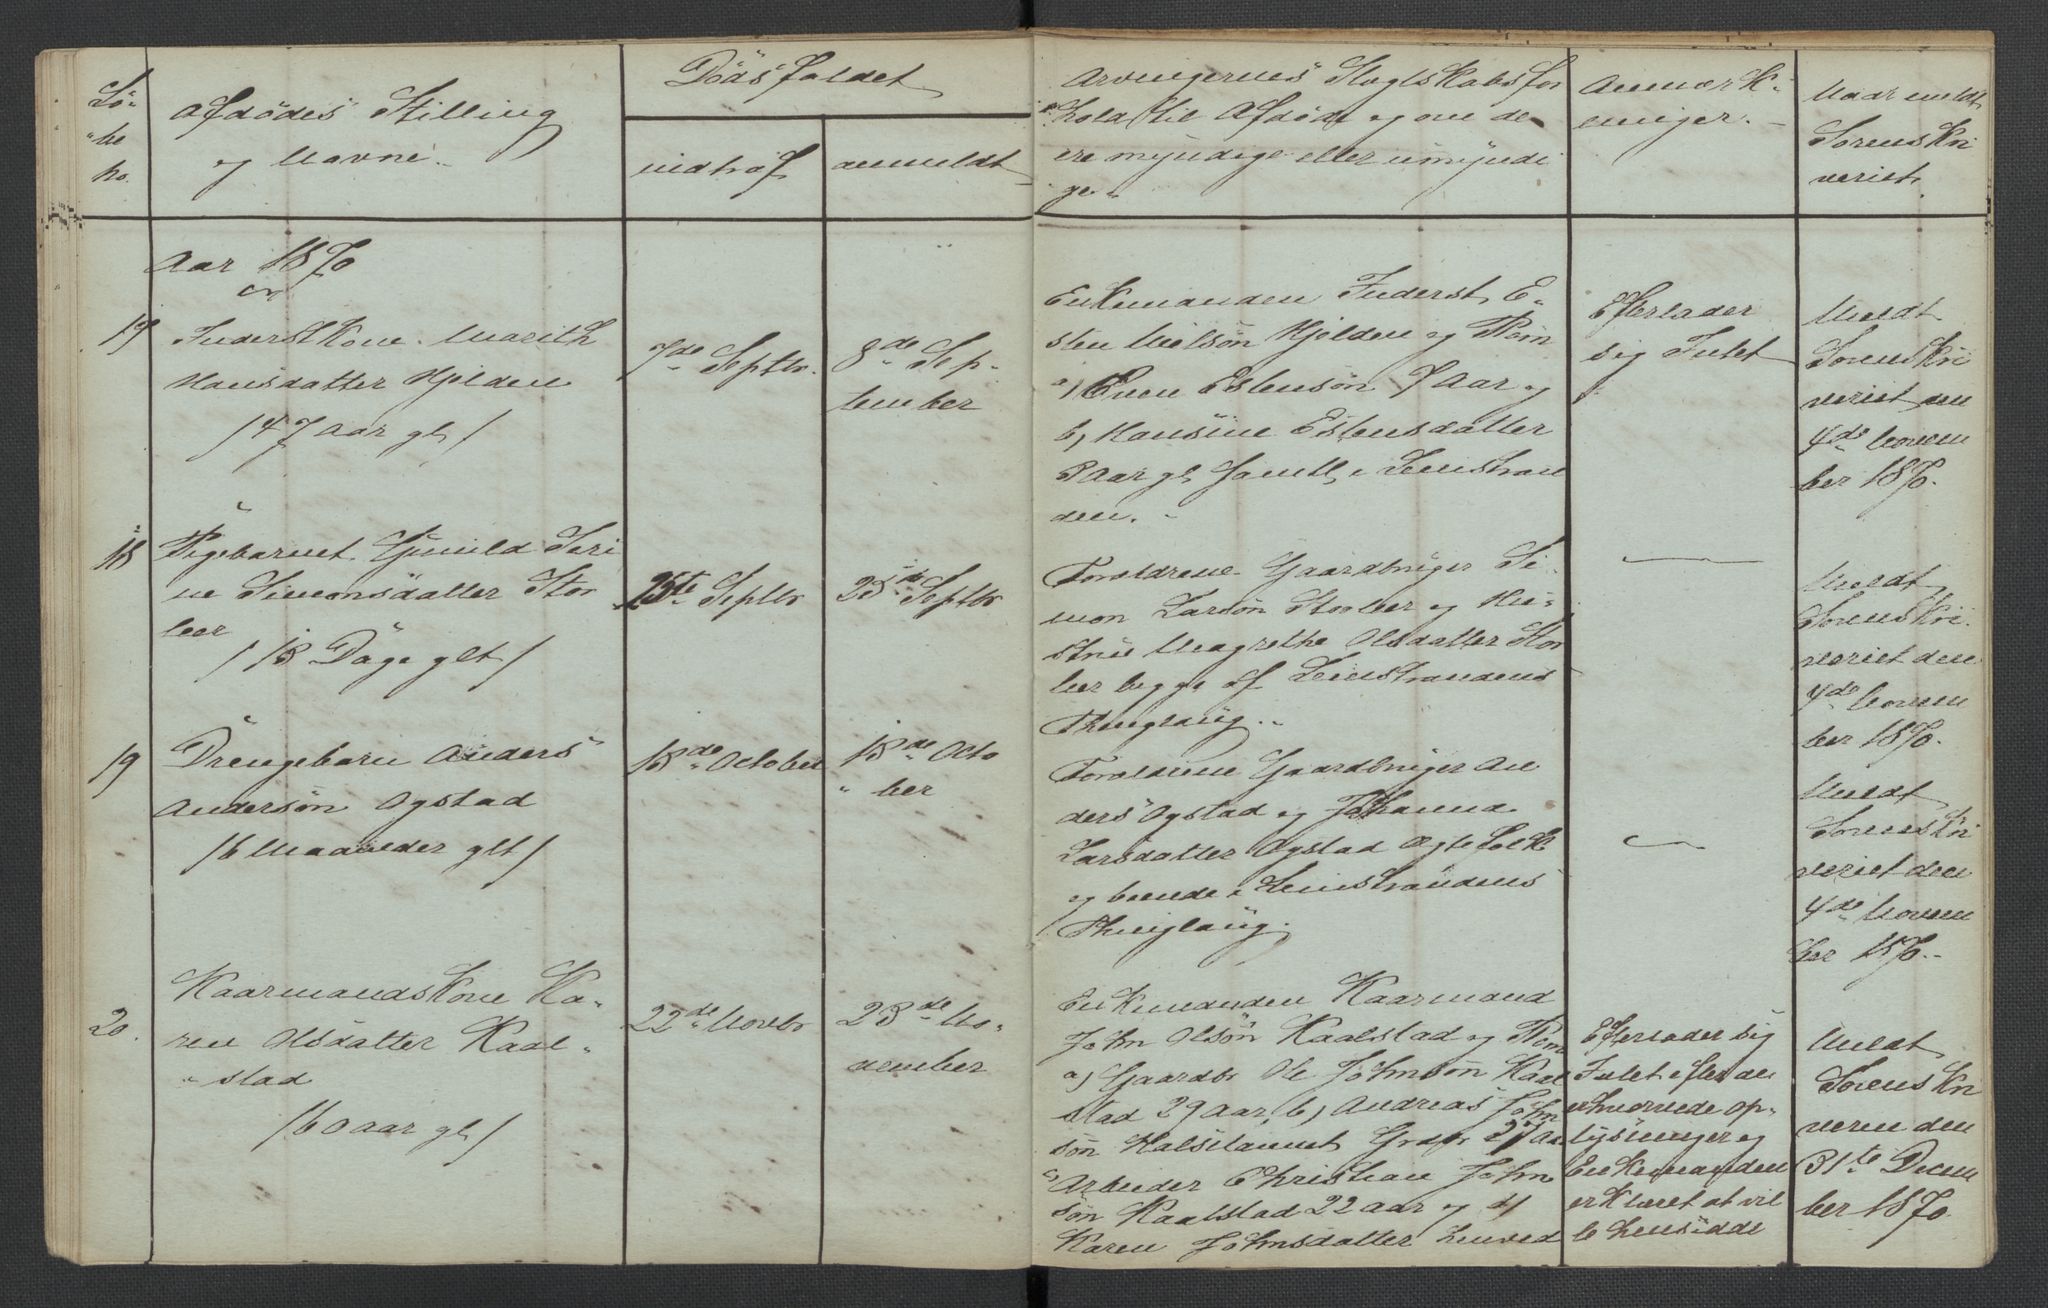 Lö-
"be
no.
Afdödes Stilling
og Navne.
Dödsfaldet
indtraf
anmeldt
Arvingernes Slægtskabsfor
"hold til Afdöde og om de
ere myndige eller umyndi
ge.
Anmærk-
ninger.
Naar meldt
Sorenskri
veriet.
Aar 1870
17
Inderstkone Marith
Hansdatter Hjelden
/47 Aar gl/
7de Septbr.
8de Sep-
tember
Enkemanden Inderst E-
sten Nielsön Hjelden og Börn
a) Even Estensön 7 Aar og
b) Hansine Estensdatter
2 Aar gl. samtl. i Leinstran
den.
Efterlader
sig Intet
Meldt
Sorenskri
veriet den
4de Novem
ber 1870.
18
Pigebarnet Gunild Seri
ne Simonsdatter Stor
leer
/18 Dage glt/
25te Septbr
28de Septbr
Forældrene Gaardbruger Si-
mon Larsön Storleer og Ki-
stine Magrethe Olsdatter Stor
leer begge af Leinstrandens
Thinglaug.
Meldt
Sorenskri-
veriet den
4de Novem
ber 1870.
19
Drengebarn Anders
Andersön Ogstad
/6 Maaneder glt/
18de October
18de Octo
" ber
Forældrene Gaardbruger An
ders Ogstad og Johanna
Larsdatter Ogstad Ægtefolk
og boende i Leinstrandens
Thinglaug.
Meldt
Sorenskri
veriet den
4de Novem
ber 1870.
20.
Kaarmandskone Ka-
ren Olsdatter Kaal-
"stad
/60 aar gl/
22de Novbr
28de No-
vember
Enkemanden Kaarmand
John Olsön Kaalstad og Börn
a) Gaardbr Ole Johnsön Kaal
stad 29 Aar, b) Andreas John
sön Halsetaunet Grdbr 27 Aar
c) Arbeider Christian John
sön Kaalstad 22 aar og d)
Karen Johnsdatter Lenved
Efterlader sig
Intet efter de
erhvervede op-
lysninger og
Enkemanden
erklæret at vil
le hensidde
Meldt
Sorenskri
veren den
31te Decem
ber 1870